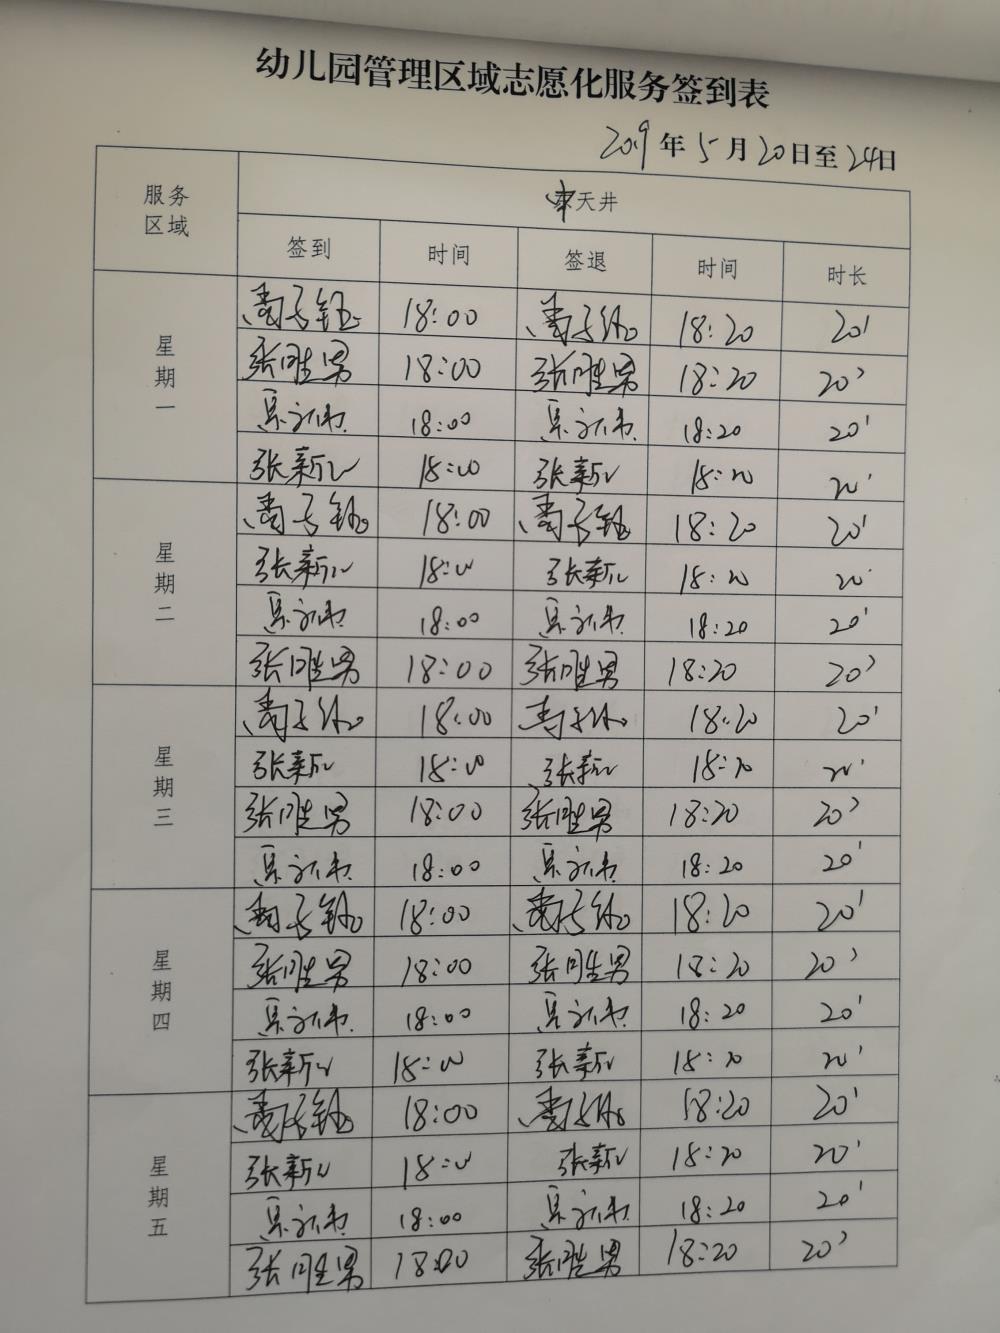 幼儿园管理区域志愿化服务签到表
2019年5月20日至24日
服务区域
天井
签到 时间 签退 时间 时长
星期一
18:00 18:20 20'
张唯男 18:00 张唯男 18:20 20'
18:00 18:20 20'
张新 18:00 张新 18:20 20'
星期二
18:00 18:20 20'
张新 18:00 张新 18:20 20'
18:00 18:20 20'
张唯男 18:00 张唯男 18:20 20'
星期三
18:00 18:20 20'
张新 18:00 张新 18:20 20'
张唯男 18:00 张唯男 18:20 20'
18:00 18:20 20'
星期四
18:00 18:20 20'
张唯男 18:00 张唯男 18:20 20'
18:00 18:20 20'
张新 18:00 张新 18:20 20'
星期五
18:00 18:20 20'
张新 18:00 张新 18:20 20'
18:00 18:20 20'
张唯男 18:00 张唯男 18:20 20'